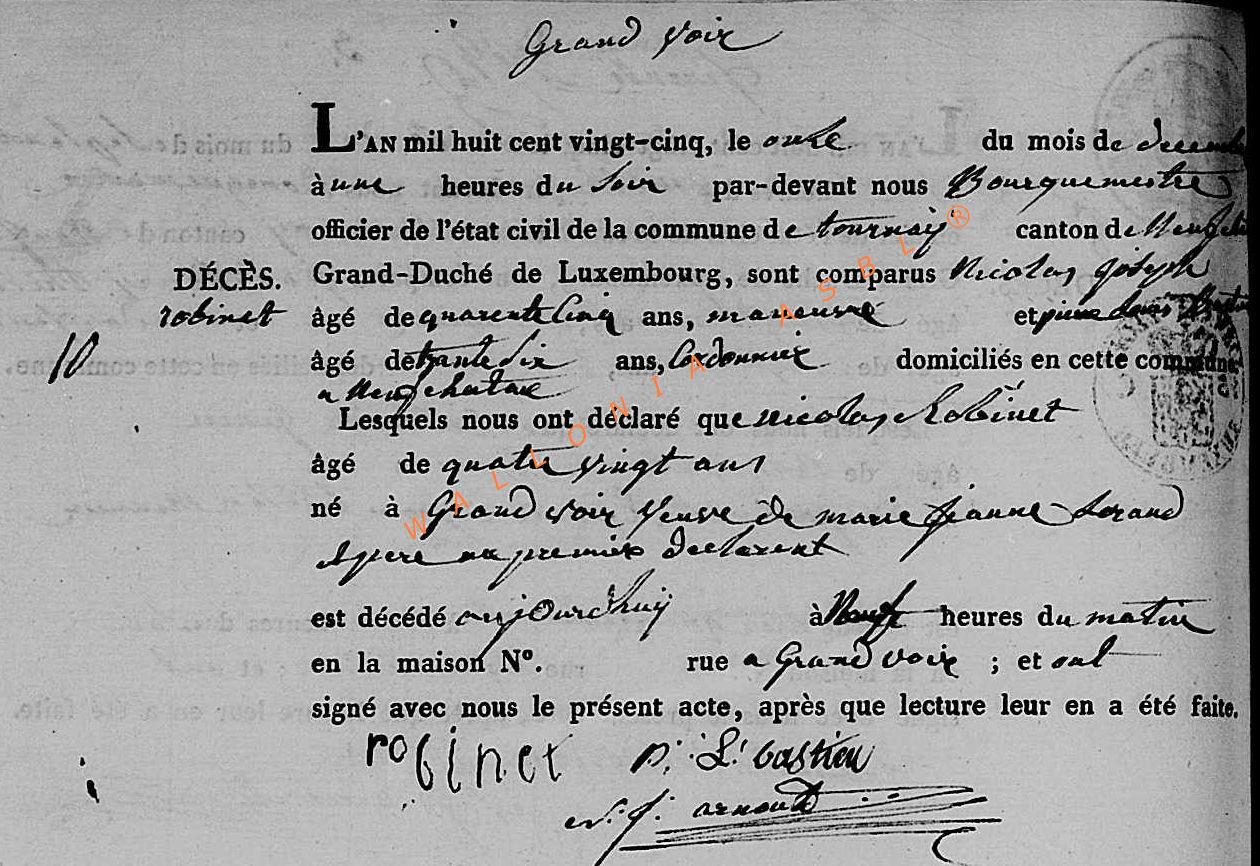 Grand Voir
L'AN mil huit cent vingt-cinq, le onze du mois de decembre
à une heures du Soir par-devant nous Bourguemestre
officier de l'état civil de la commune de tournay canton de Neufchat
DÉCÈS. Grand-Duché de Luxembourg, sont comparus Nicolas joseph
robinet âgé de quarente Cinq ans, maneuvre et pierre Louis Bastin
10 âgé de trante Six ans, Cordonnier domiciliés en cette commune
a Neufchatau
Lesquels nous ont déclaré que nicolas Robinet
âgé de quatre vingt ans
né à Grand voir Veuve de marie jeanne
pere au premier declarent
est décédé aujourdhuy à Neuf heures du matin
en la maison Nº. rue a Grand voir ; et ont
signé avec nous le présent acte, après que lecture leur en a été faite.
robinet P. L. bastien
N. J. arnould
WALLONIA ASBL ®